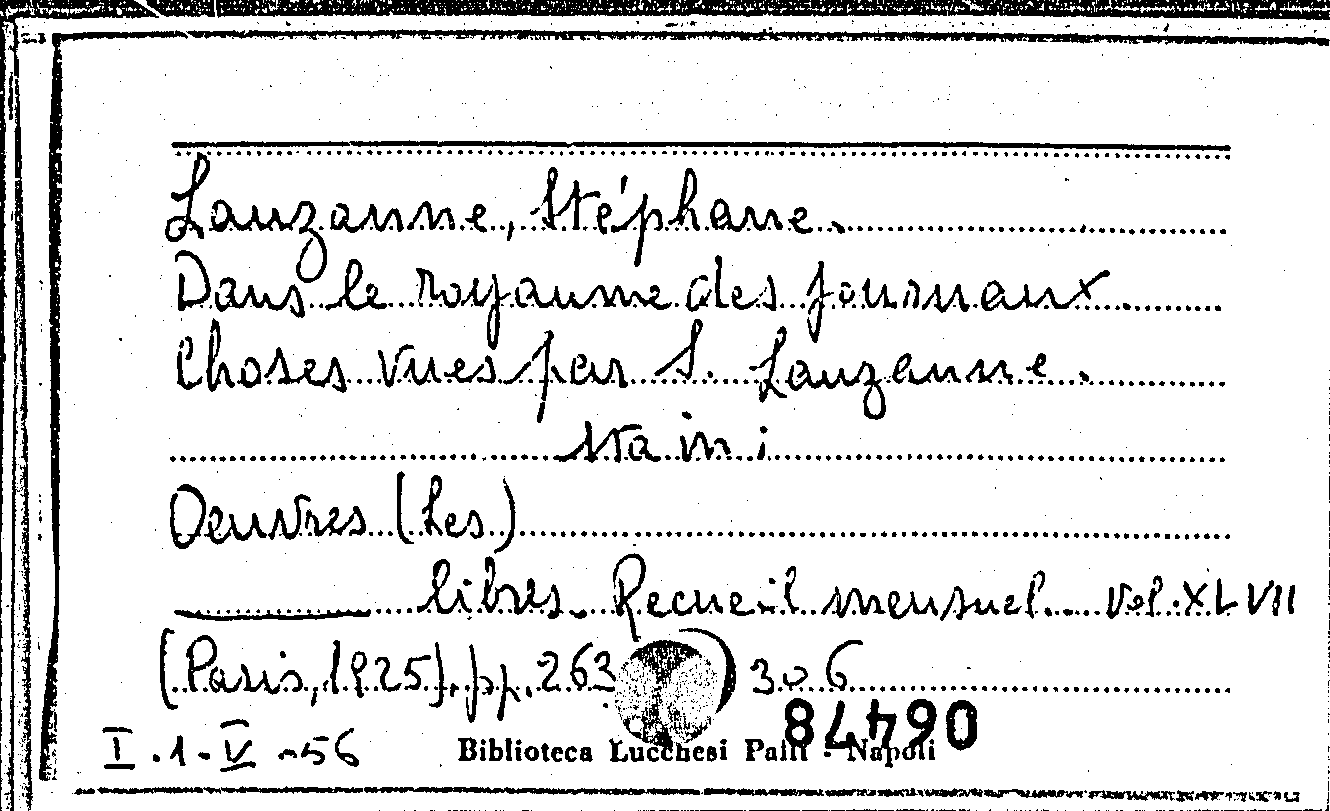 Lauzanne, Stéphane.
Dans le royaume des journaux.
Choses vues par S. Lauzanne.
sta in:
Oeuvres (Les)
libres. Recueil mensuel. Vol. XLVII
(Paris, 1925), pp. 263 ) 306
I.1-V-56
Biblioteca Lucchesi Palli - Napoli